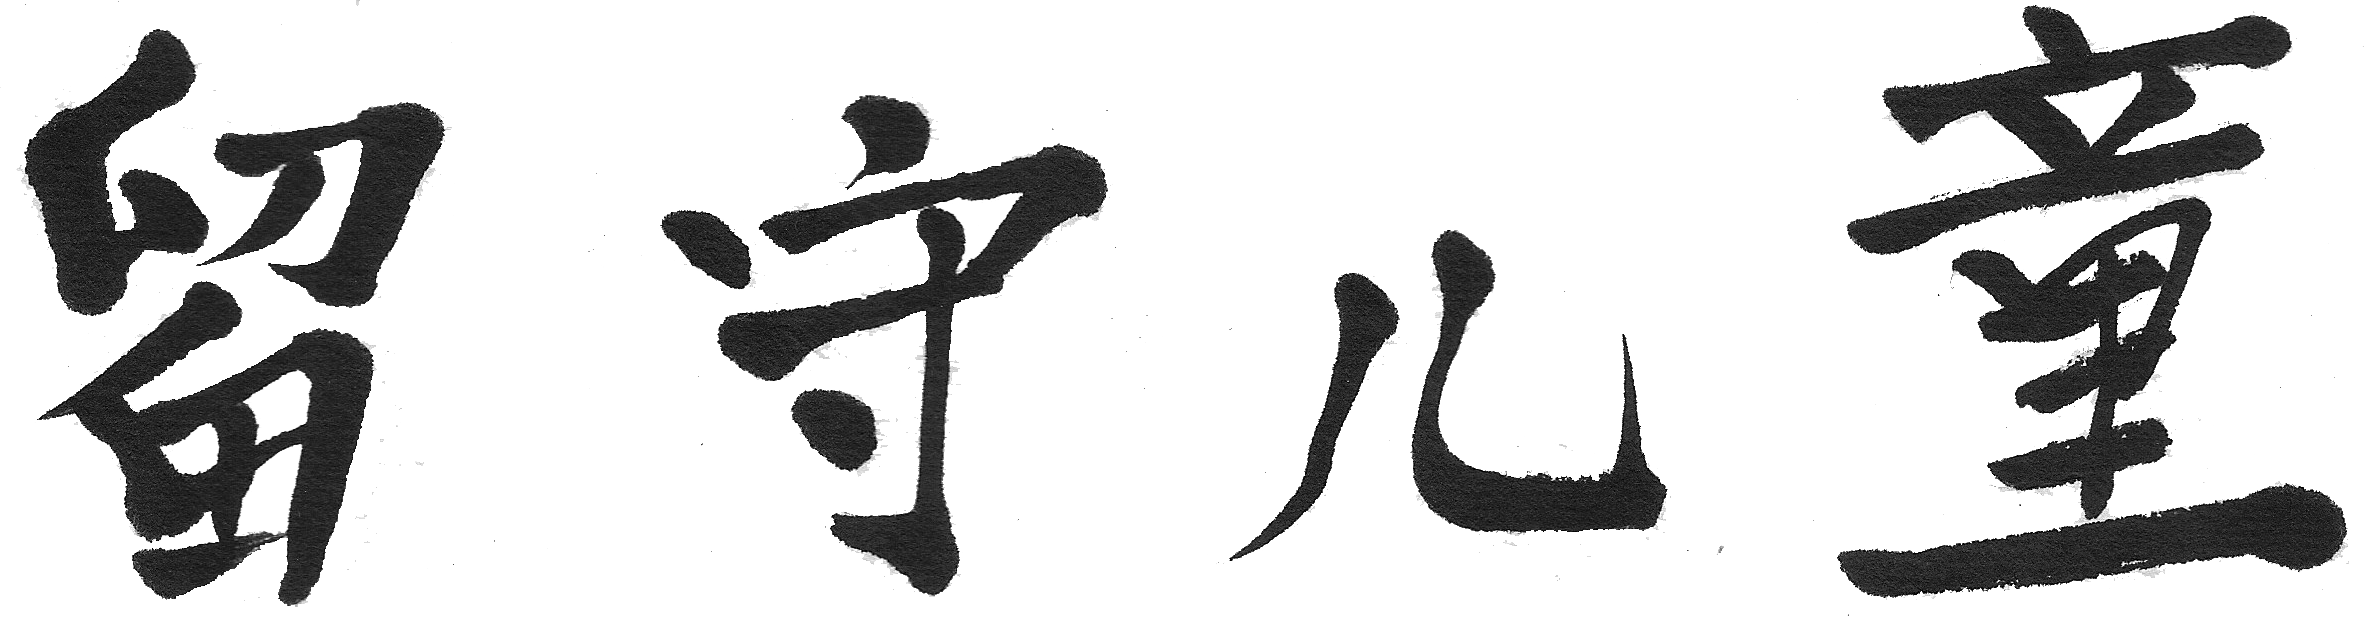 留守儿童